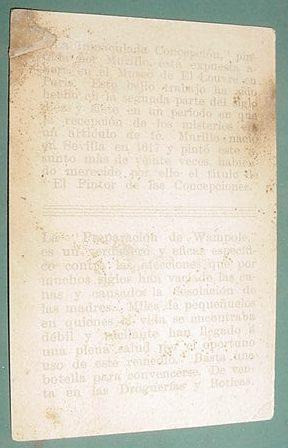 Inmaculada Concepción," pin-
por Murillo, está expuesta a
en el Museo de El Louvre en
París. Este bello trabajo
hecho en la segunda parte del siglo
diez y siete en un período en que
la recepción de misterios
un artículo de fé. Murillo nació
en Sevilla en 1617 y pintó este
sunto más de veinte veces, habien-
do merecido por ello el título de
"El Pintor de las Concepciones."
La "Preparación de Wampole,"
es un verdadero y eficaz específi-
co contra las afecciones que por
muchos siglos han variado las ce-
nas y causado la desolación de
las madres. Miles de pequeñuelos
en quienes la vista se encontraba
débil y vacilante han llegado á
una plena salud por oportuno
uso de este remedio. Basta una
botella para convencerse. De ven-
ta en las Droguerías y Boticas.